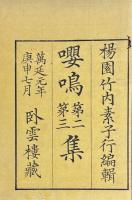 楊園竹内素子行編輯
嚶鳴
第二
第三
集
萬延元年
庚申七月
臥雲樓藏